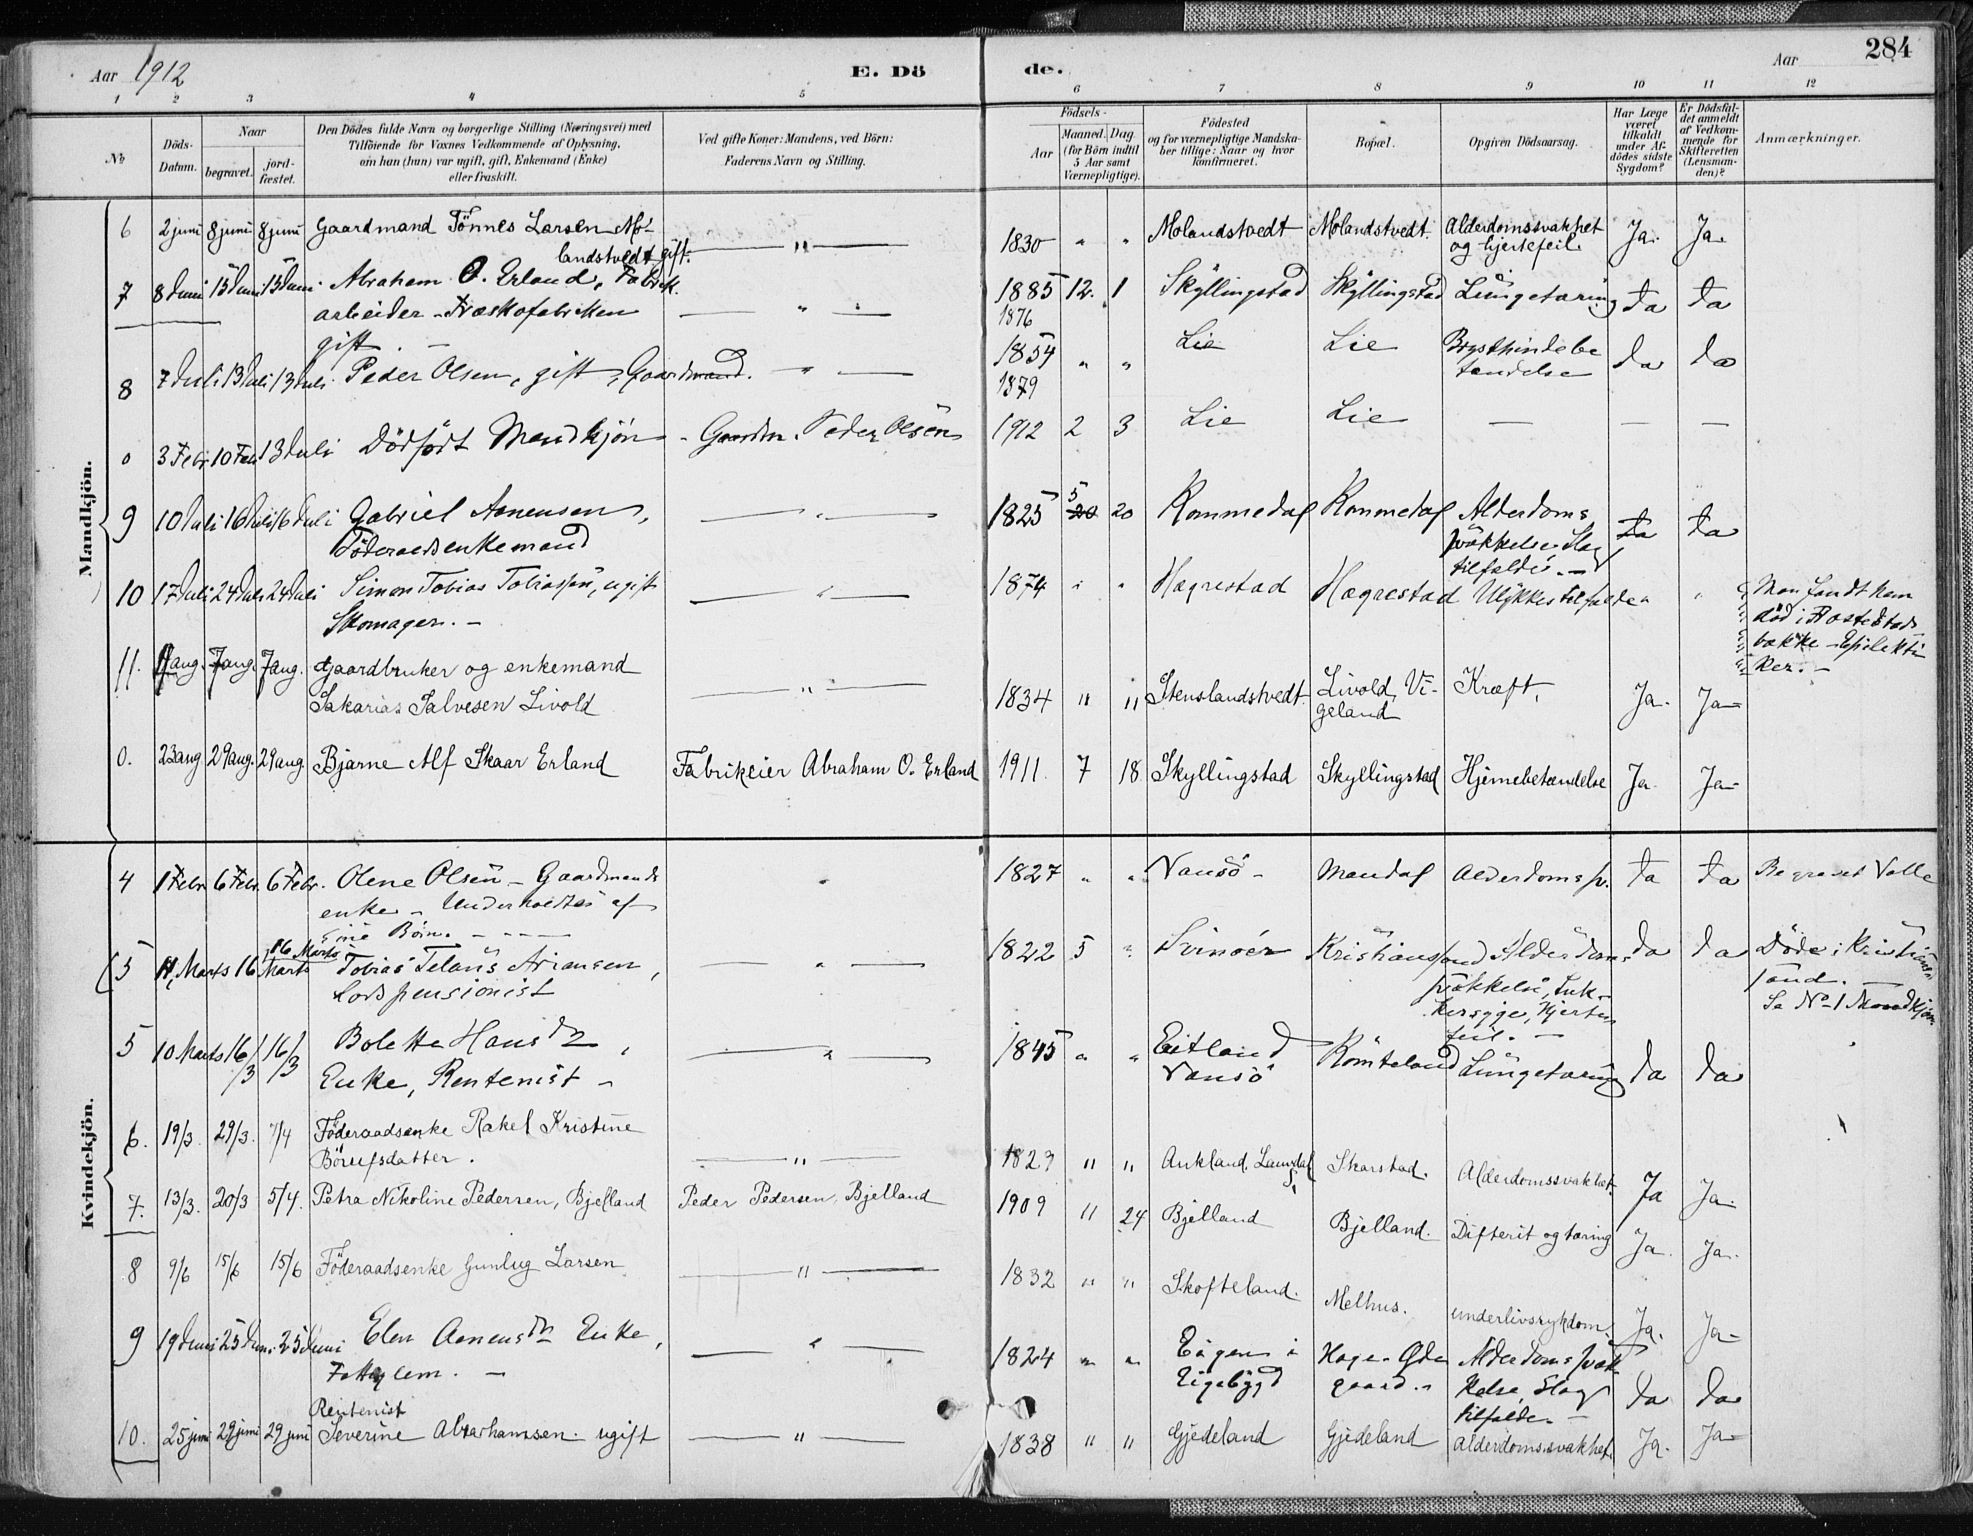 Aar 1912
E. Dö
de.
Aar
284
1 2 3 4 5 6 7 8 9 10 11 12
No
Döds-
Datum.
Naar
begravet.
jord-
fæstet.
Den Dödes fulde Navn og borgerlige Stilling (Næringsvei) med
Tilföiende for Voxnes Vedkommende af Oplysning,
om han (hun) var ugift, gift, Enkemand (Enke)
eller fraskilt.
Ved gifte Koner: Mandens, ved Börn:
Faderens Navn og Stilling.
Födsels-
Aar
Maaned. Dag.
(for Börn indtil
5 Aar samt
Værnepligtige).
Födested
og for værnepligtige Mandska-
ber tillige: Naar og hvor
konfirmeret.
Bopæl.
Opgiven Dödsaarsag.
Har Læge
været
tilkaldt
under Af-
dödes sidste
Sygdom?
Er Dödsfal-
det anmeldt
af Vedkom-
mende for
Skifteretten
(Lensman-
den)?
Anmærkninger.
Mandkjön.
6 2 juni 8 juni 8 juni Gaardmand Tönnes Larsen Mo-
landstvedt gift. — " — 1830 " " Molandstvedt Molandstvedt. Alderdomssvakhet
og hjertefeil. Ja. Ja.
7 8 Juni 15 Juni 15 Juni Abraham O. Erland, Fabrik.
arbeider - Træskofabriken
gift. — " — 1885 12. 1 Skyllingstad Skyllingstad Lungetæring Ja Ja
1876
8 7 Juli 13 Juli 13 Juli Peder Olsen, gift, Gaardmand. — " — 1854 " " Lie Lie Brysthindebe
tændelse Ja Ja
1879
0 3 Febr 10 Feb 13 Juli Dödfödt Mandkjön - Gaardm. Peder Olsen 1912 2 3 Lie Lie — — —
9 10 Juli 16 Juli 16 Juli Gabriel Aanensen,
Föderaadsenkemand — " — 1825 5 20 20 Rommedal Rommedal Alderdoms
svækkelse, Slag
tilfælde. — Ja Ja
10 17 Juli 24 Juli 24 Juli Simon Tobias Tobiassen, ugift
Skomager. — — " — 1874 " " Hægrestad Hægrestad Ulykkestilfælde " "
Man fandt ham
död i
bakke - Epilekti
ker. —
11. 1 aug. 7 aug. 7 aug. Gaardbruker og enkemand
Sakarias Salvesen Livold — " — 1834 " " Stenslandstvedt. Livold, Vi-
geland Kræft, Ja. Ja
0. 23 aug 29 aug. 29 aug Bjarne Alf Skaar Erland Fabrikeier Abraham O. Erland 1911. 7 18. Skyllingstad Skyllingstad Hjernebetændelse Ja. Ja
Kvindekjön.
4 1 Febr 6 Febr. 6 Febr. Olene Olsen - Gaardmands
enke - Underholdtes af
sine Börn. — " 1827 " " Vansö - Mandal Alderdomssv. Ja Ja Begravet Valle
(5 11 Marts 16 Marts 16 Marts Tobias Ariansen,
Lodspensionist — " — 1822 5 " Svinoer Kristianssand Alderdoms
svækkelse, Suk-
kersyge, Hjerte
feil. — Ja Ja Döde i Kristians
sand. —
Se No 1 Mandkjön
5 10 Marts 16/3 16/3 Bolette Hansdtr,
Enke, Rentenist — — " — 1845 " " Eitland
Vansö Römteland Lungetæring Ja Ja
6. 19/3. 29/3. 7/4 Föderaadsenke Rakel Kristine
Börufsdatter. — " — 1829 " " Aukland, Laudal
S. Skarstad. Alderdomssvakhet. Ja Ja.
7. 13/3. 20/3 5/4. Petra Nikoline Pedersen, Bjelland Peder Pedersen, Bjelland 1909 " 24 Bjelland Bjelland. Difterit og tæring Ja. Ja.
8 9/6 15/6 15/6 Föderaadsenke Gunlug Larsen — " — 1832 " " Skofteland. Melhus. underlivssykdom. Ja. Ja
9 19 Juni 25 Juni 25 Juni Elen Aanensdtr Enke,
Fattiglem. — — " — 1824 " " Eigen i
Eigebygd Hage - Öde
gaard. Alderdomssvæk
kelse, Slag
tilfælde. — Ja Ja
10. 25 juni 29 juni 29 juni Rentenist
Severine Abrahamsen. ugift — " — 1838 " " Gjedeland Gjedeland Alderdomssvakhet. Ja. Ja